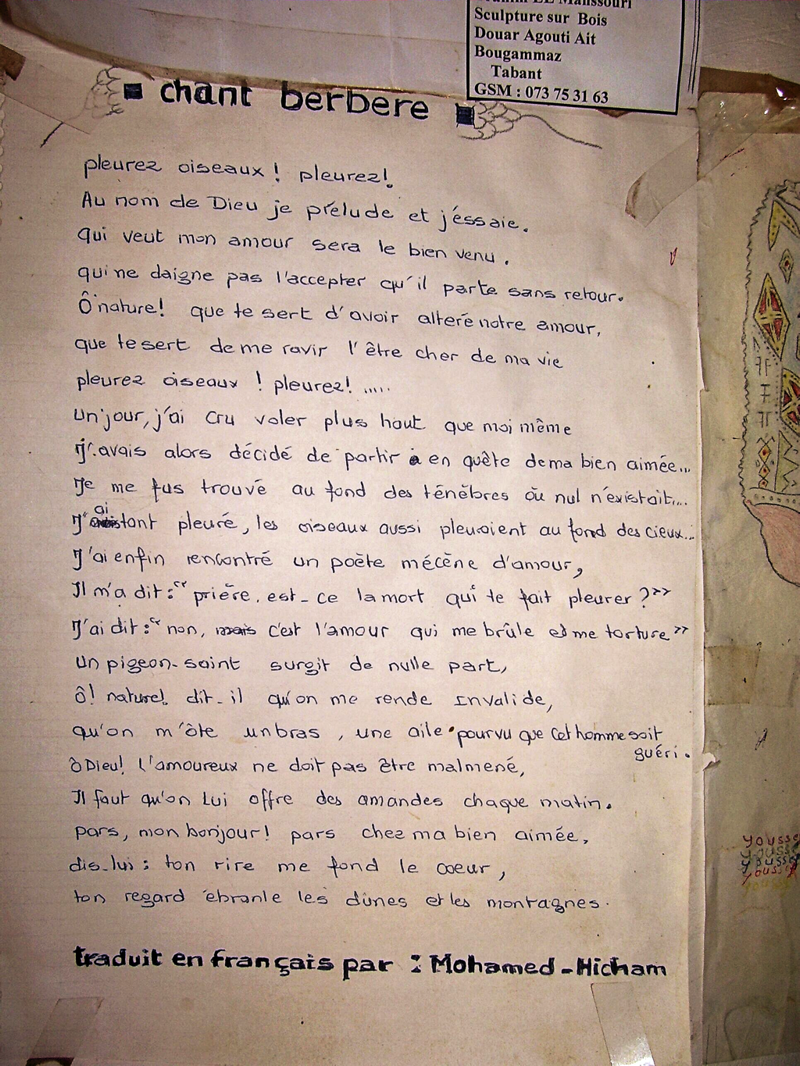 EL Manssouri
Sculpture sur Bois
Douar Agouti Ait
Bougammaz
Tabant
GSM : 073 75 31 63
chant berbere
pleurez oiseaux ! pleurez !
Au nom de Dieu je prélude et j'éssaie.
qui veut mon amour sera le bien venu.
qui ne daigne pas l'accepter qu'il parte sans retour.
Ô nature! que te sert d'avoir alteré notre amour,
que te sert de me ravir l'être cher de ma vie
pleurez oiseaux ! pleurez! .....
Un jour, j'ai cru voler plus haut que moi même
J'avais alors décidé de partir en quête de ma bien aimée...
Je me fus trouvé au fond des ténêbres où nul n'existait...
J'ai tant pleuré, les oiseaux aussi pleuraient au fond des cieux...
J'ai enfin rencontré un poète mécène d'amour,
Il m'a dit : "prière. est-ce la mort qui te fait pleurer ?"
J'ai dit : "non, mais c'est l'amour qui me brûle et me torture"
Un pigeon-saint surgit de nulle part,
ô! nature! dit-il qu'on me rende invalide,
qu'on m'ôte un bras, une aile pourvu que cet homme soit
guéri.
ô Dieu! L'amoureux ne doit pas être malmené,
Il faut qu'on Lui offre des amandes chaque matin.
pars, mon bonjour! pars chez ma bien aimée,
dis-lui : ton rire me fond le coeur,
ton regard ébranle les dûnes et les montagnes.
traduit en français par : Mohamed-Hicham